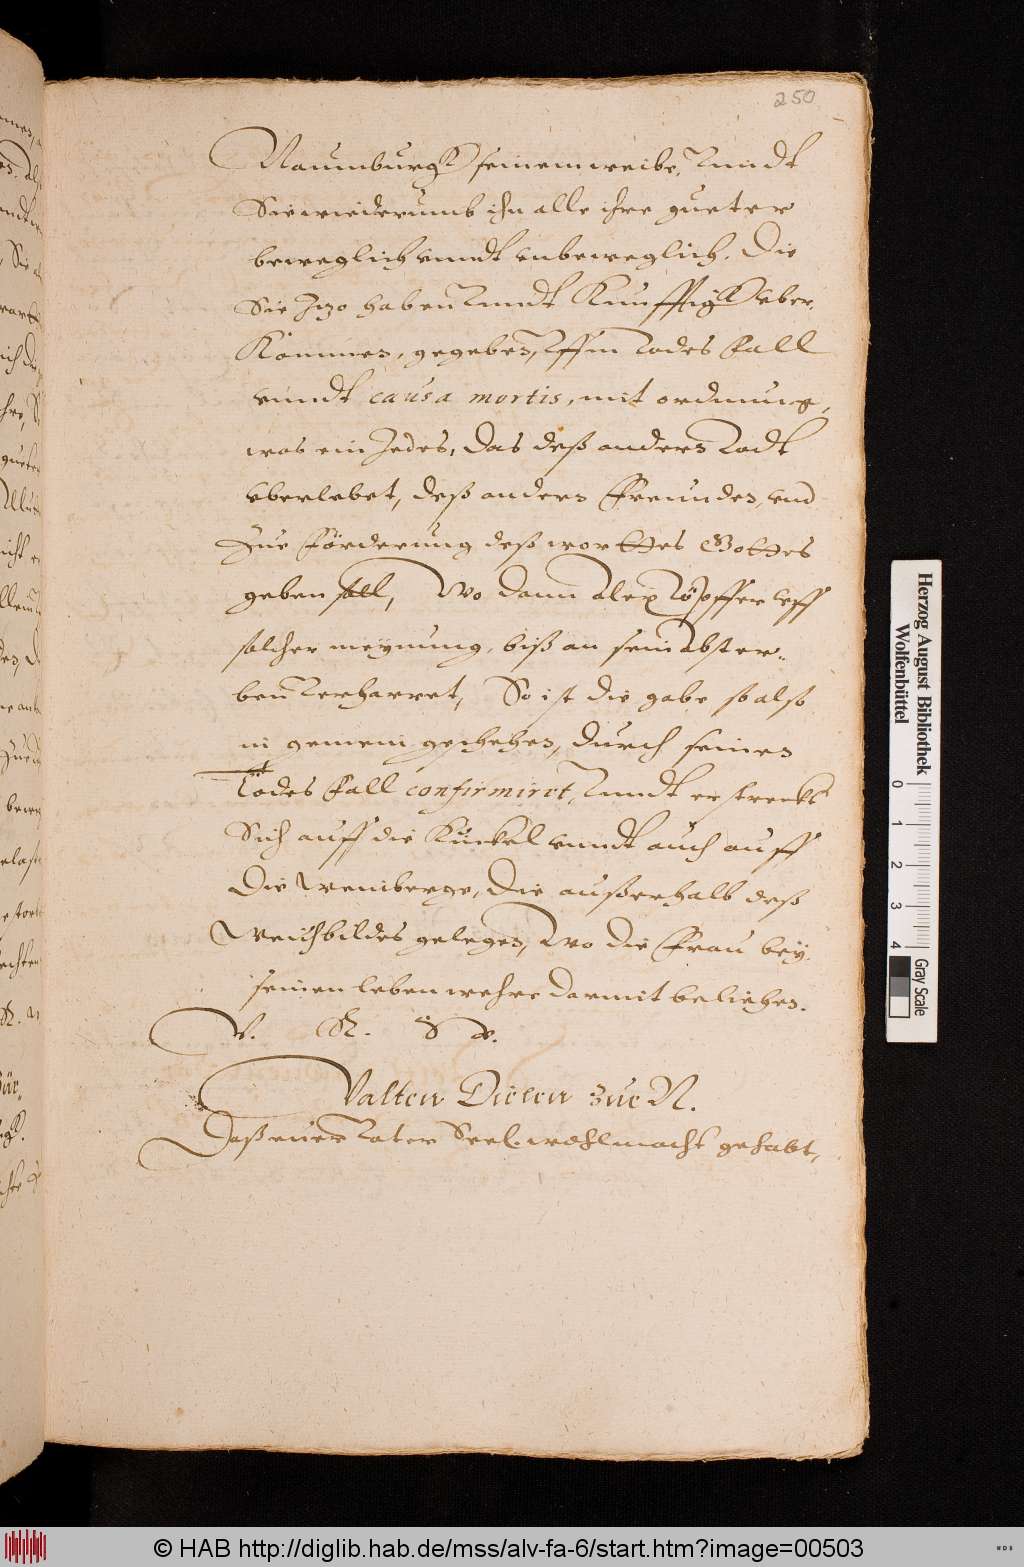 250
Naumburgk seinem weibe, Vnndt
Sie wiederumb ihn alle ihre gueter
beweglich vnndt vnbeweglich, Die
Sie Izo haben Vnndt Kunfftigk vber-
Kommen, gegeben, Vff in Todes Fall
vnndt causa mortis, mit ordnung,
was ein Jedes, Das deß andern Todt
vberlebet, deß andern Freunden, vnd
Zue Förderung deß worttes Gottes
geben soll, Wo dann Alex Töpffer vff
solcher meynung, biß an sein Abster-
ben Verharret, So ist die gabe so also
in gemein geschehen, Durch seinen
Todes Fall confirmiret, Vnndt erstreckt
Sich auff die Kuckel vnndt auch auff
Die Weinberge, Die außerhalb deß
Weichbildes gelegen, Wo die Frau bey
seinen leben wehre darmit beliehen.
V. R. W.
Valten Dielen zue N.
Daß euer Vater Seel. wohlmacht gehabt,
Herzog August Bibliothek
Wolfenbüttel
0 1 2 3 4
Gray Scale
© HAB http://diglib.hab.de/mss/alv-fa-6/start.htm?image=00503
WDB